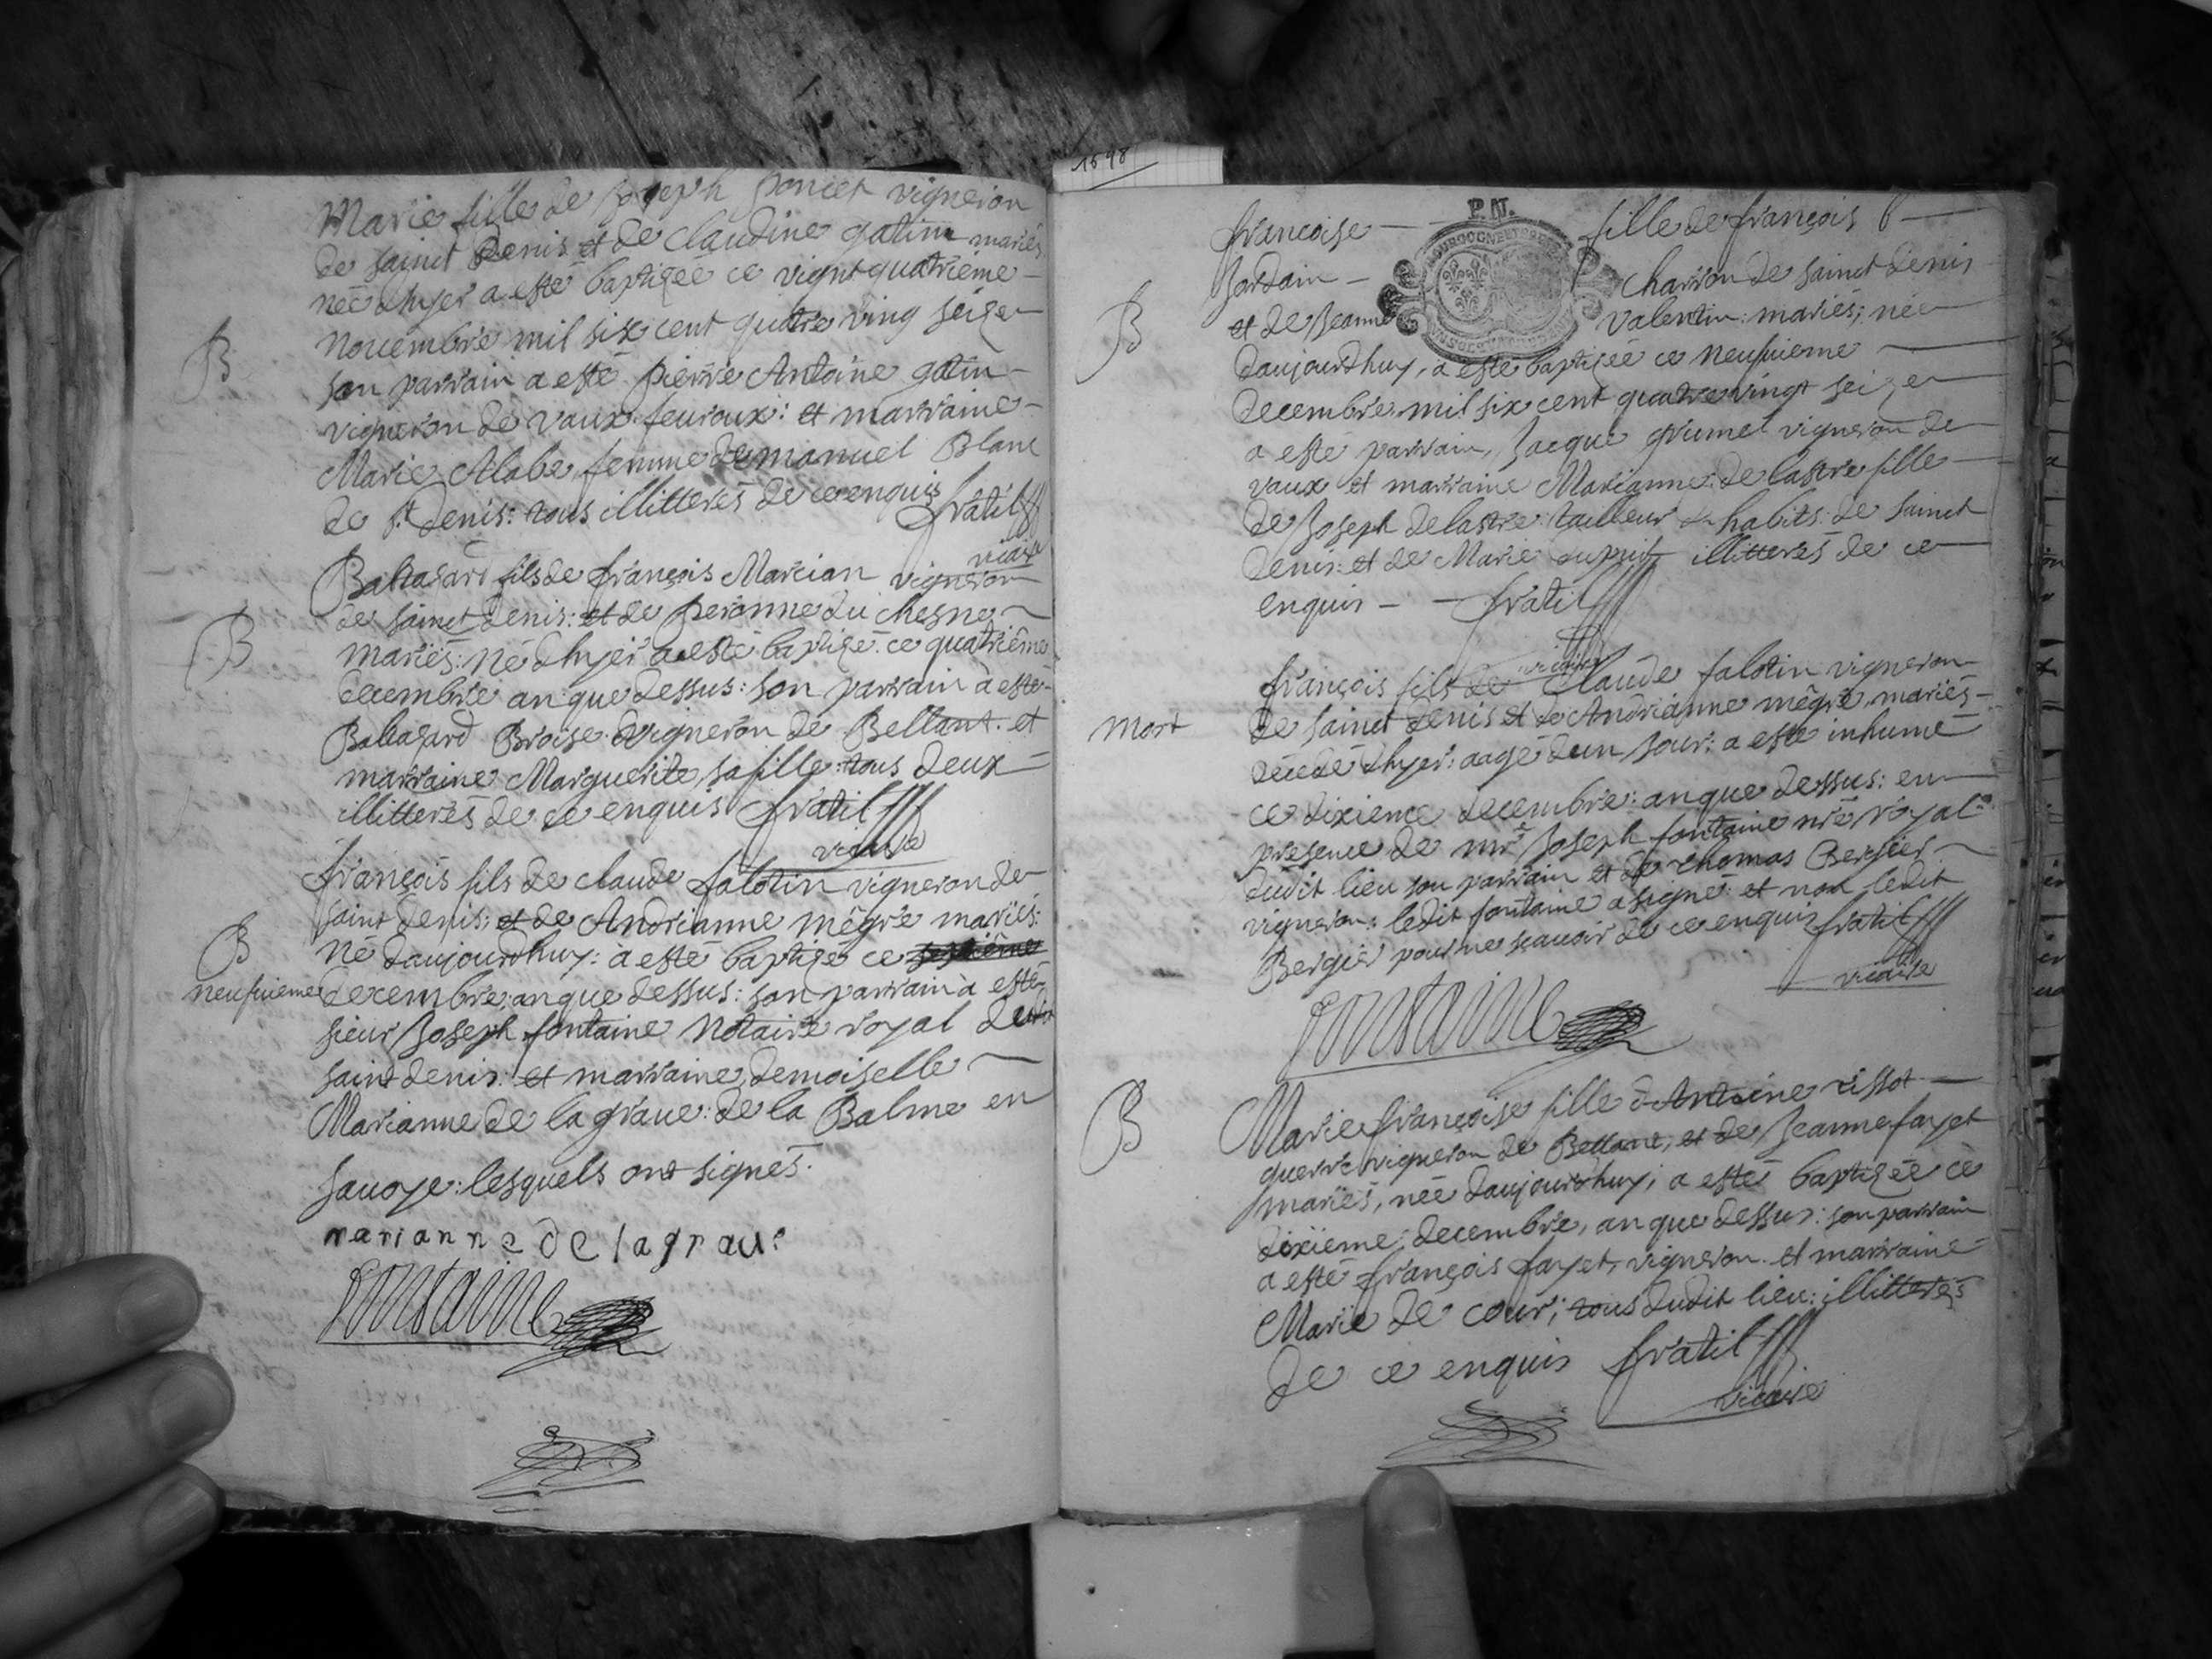 Marie fille de Joseph poncet vigneron
de sainct Denis et de Claudine gatin mariés
née dhyer a esté baptizée ce vignt quatrieme
Novembre mil six cent quatre ving seize
B
son parrain a esté pierre Antoine gatin
vigneron de vaux feuroux: et marraine
Marie Alabe femme demanuel Blanc
de st denis: tous illitterés de ce enquis fratil
vicaire
Baltasard fils de françois Marcian vigneron
de sainct denis: et de peronne du chesne
B
mariés: né dhyer a esté baptizé ce quatriéme
decembre an que dessus: son parrain à esté
Baltasard Broise vigneron de Bettant. et
marraine Marguerite sa fille: tous deux
illitterés de ce enquis fratil
vicaire
françois fils de claude falotin vigneron de
saint denis; et de Andrianne mégre mariés:
B
né daujourdhuy: a esté baptizé ce
neufuieme decembre, an que dessus: son parrain à esté
sieur Joseph fontaine Notaire royal dudit
saint denis: et marraine, demoiselle
Marianne de la graue: de la Balme en
sauoye: lesquels ont signés.
marianne de lagraue
fontaine
1698
P. N.
francoise fille de françois
Jardain charron de sainct denis
B
et de Jeanne valentin: mariés; née
daujourdhuy, a esté baptizée ce neufuieme
decembre mil six cent quatre vingt seize
a esté parrain, Jacque grumel vigneron de
vaux et marraine Marianne de lastre fille
de Joseph delastre: tailleur habits: de sainct
denis: et de Marie dupuit illitterés de ce
enquis fratil
vicaire
françois fils de Claude falotin vigneron
mort
de sainct denis et de Andrianne mégre, mariés
décédé dhyer: aagé dun jour: a esté inhumé
ce dixieme decembre: an que dessus: en
presence de mre Joseph fontaine nre royal
dudit lieu son parrain et de thomas Bergier
vigneron: ledit fontaine a signé: et non ledit
Bergier pour ne scauoir de ce enquis fratil
vicaire
fontaine
B
Marie françoise fille d Antoine tissot
querre vigneron de Bettant, et de Jeanne fayet
mariés, née daujourdhuy; a estée baptizée ce
dixieme decembre, an que dessus: son parrain
a esté françois fayet, vigneron. et marraine
Marie de cour; tous dudit lieu: illitterés
de ce enquis fratil
vicaire